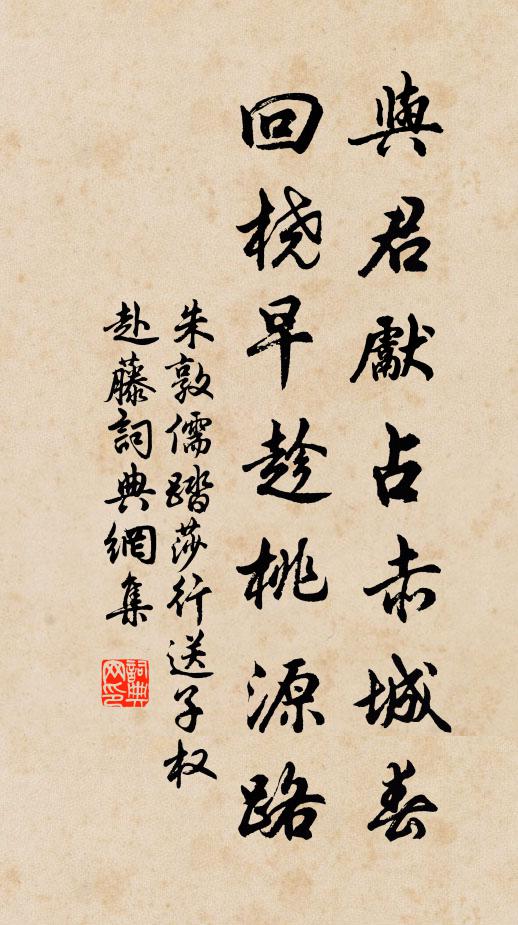 與君獻占赤城春
回桡早趁桃源路
朱敦儒踏莎行送子权
赴藤詞典網集
詞典網印